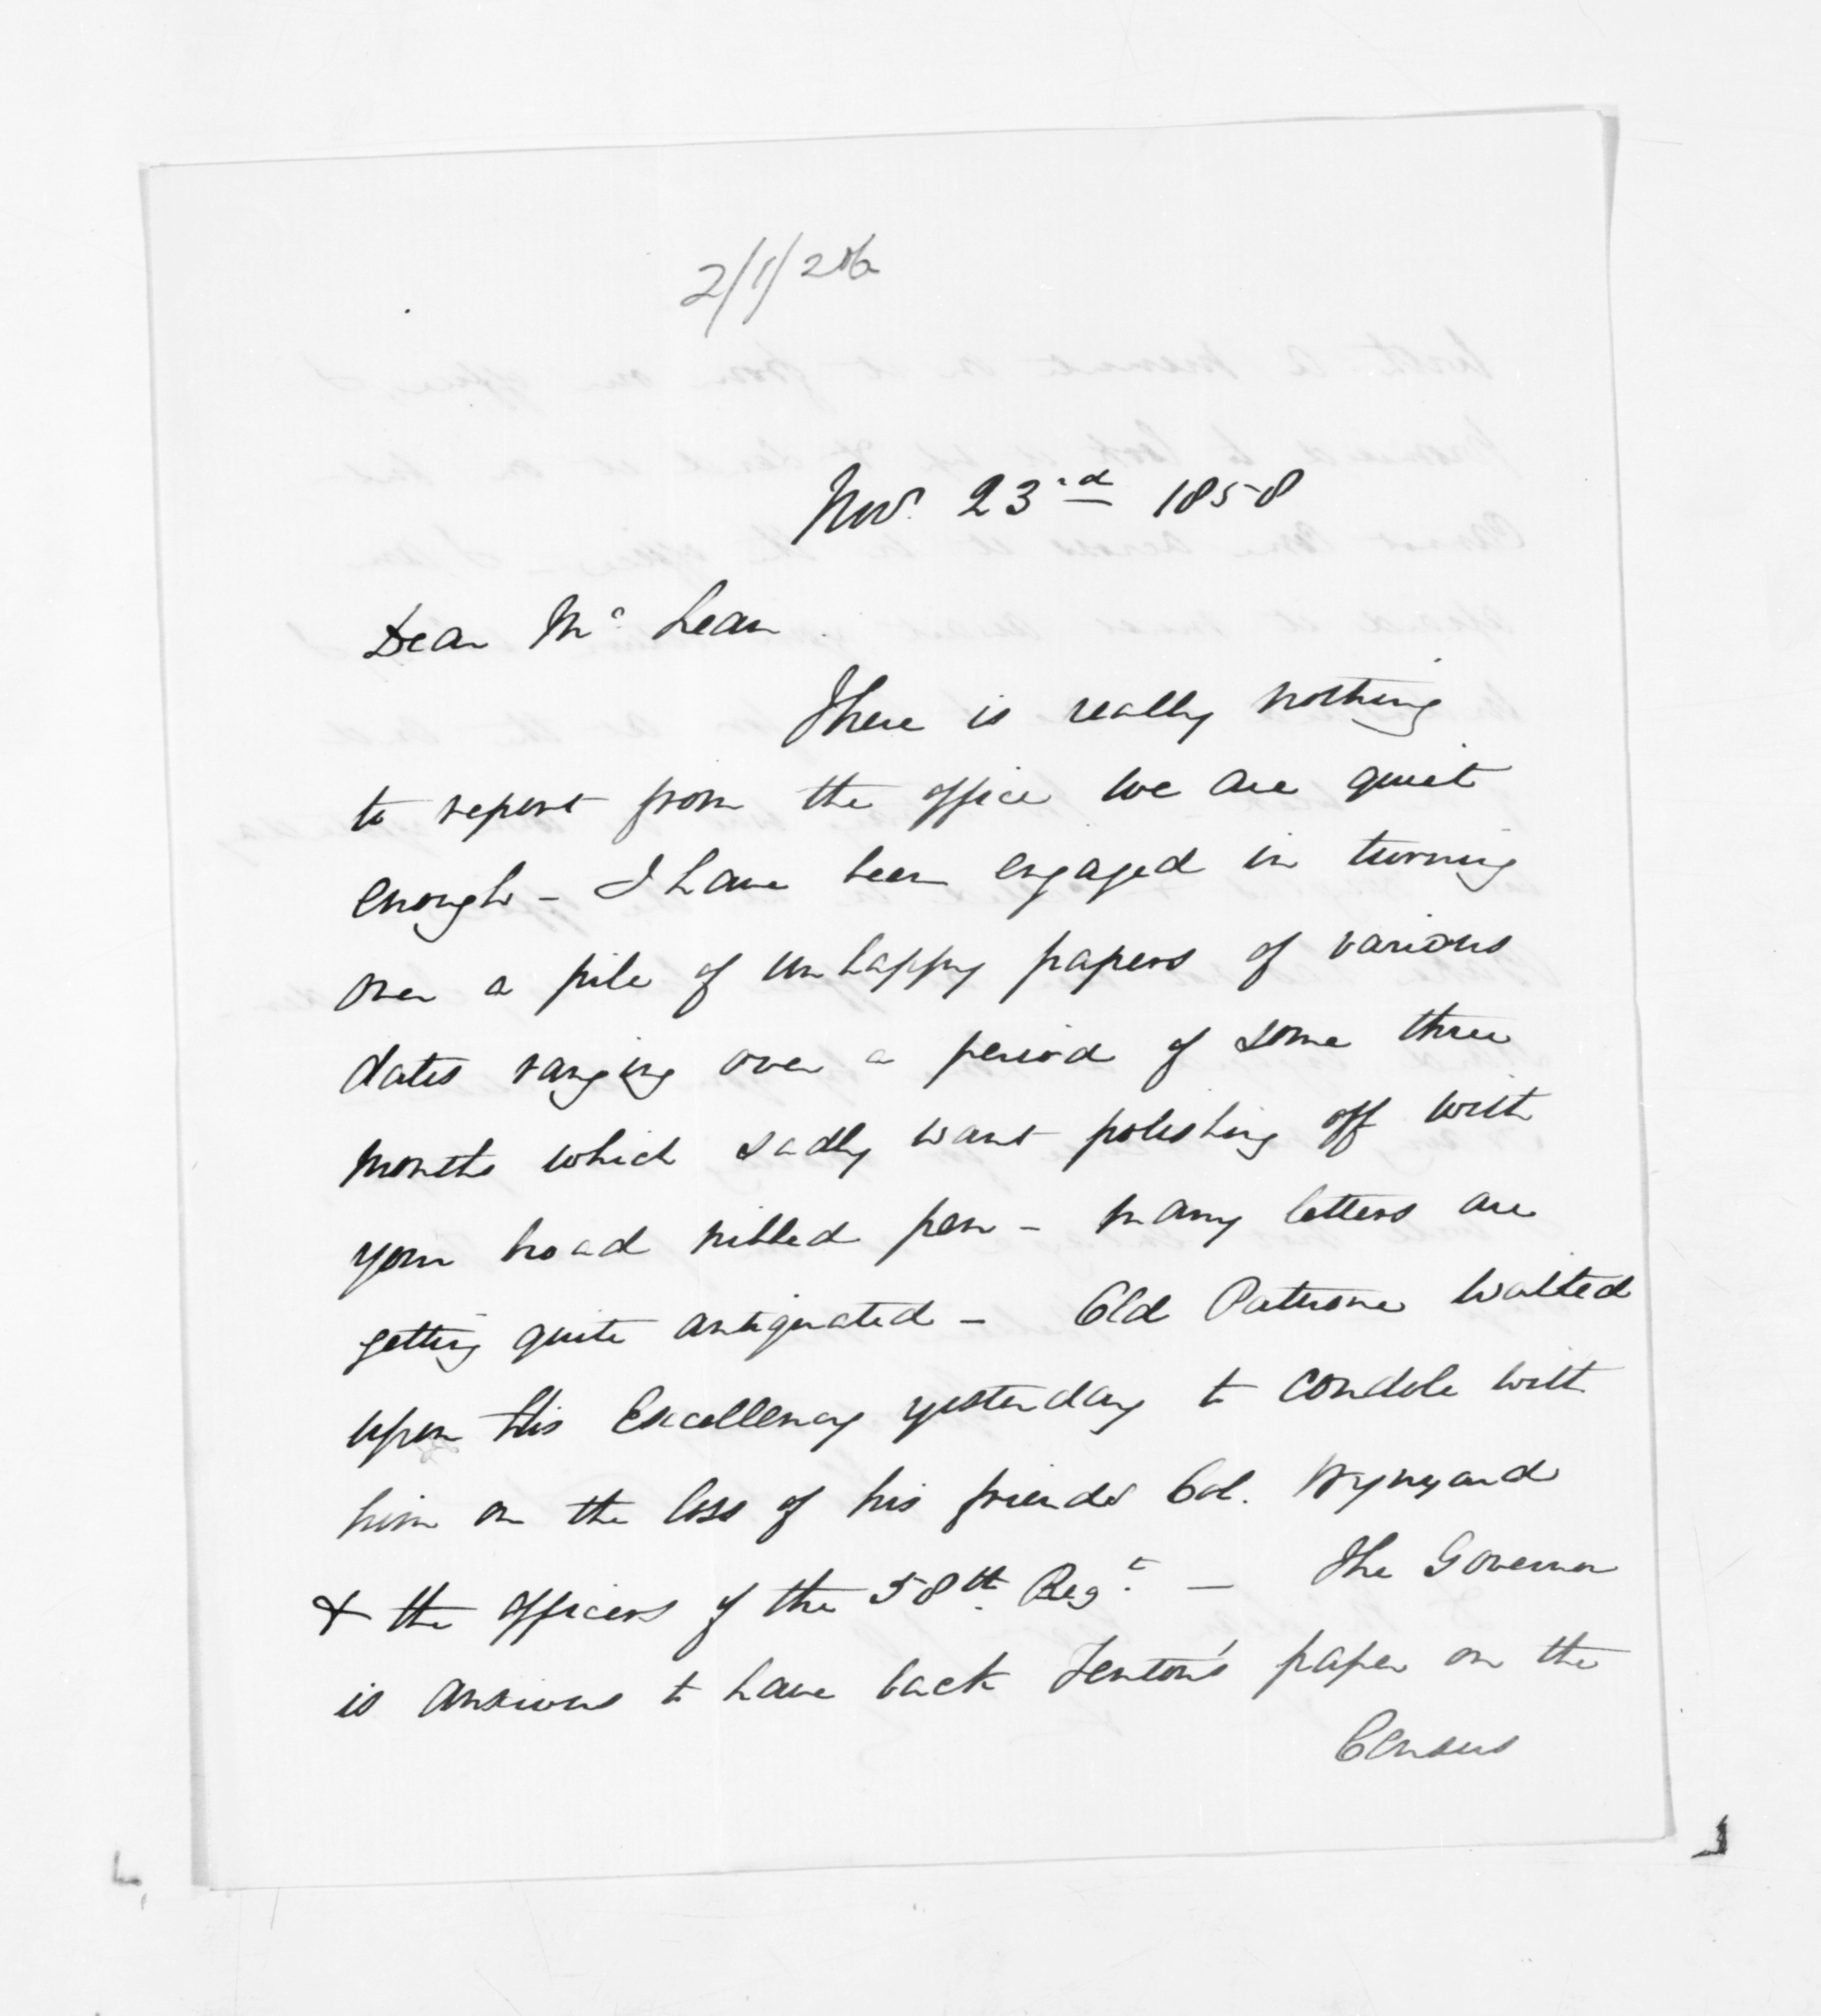 Nov. 23rd 1858
Dear Mc Lean
There is really nothing
to report from the office we are quiet
enough - I have been engaged in turning
over a pile of unhappy papers of various
dates ranging over a period of some three
months which sadly want polishing off with
your broad nibbed pen - many letters are
getting quite antiquated - Old Patuone waited
upon His Excellency yesterday to condole with
him on the loss of his friends Col. Wynyard
& the officers of the 58th Regt. - The Governor
is anxious to have back Fenton's paper on the
Census